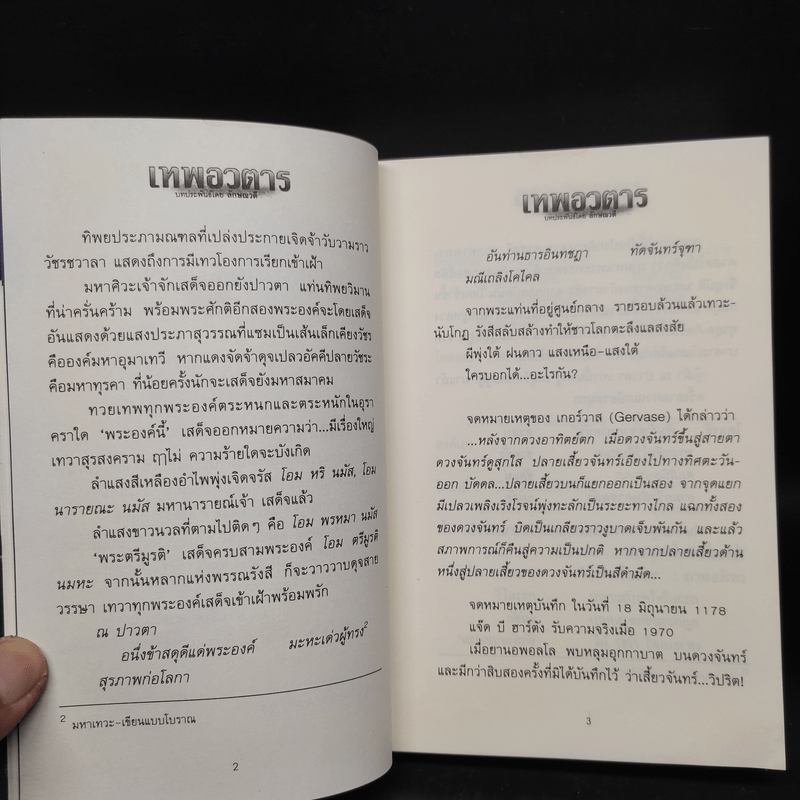 เทพอวตาร
บทประพันธ์โดย ลักษณวดี
ทิพยประภามณฑลที่เปล่งประกายเจิดจ้าวับวามราว
วัชรชวาลา แสดงถึงการมีเทวโองการเรียกเข้าเฝ้า
มหาศิวะเจ้าจักเสด็จออกยังปาวตา แท่นทิพยวิมาน
ที่น่าครั่นคร้าม พร้อมพระศักติอีกสองพระองค์จะโดยเสด็จ
อันแสดงด้วยแสงประภาสุวรรณที่แซมเป็นเส้นเล็กเคียงวัชร
คือองค์มหาอุมาเทวี หากแดงจัดจ้าดุจเปลวอัคคีปลายวัชระ
คือมหาทุรคา ที่น้อยครั้งนักจะเสด็จยังมหาสมาคม
ทวยเทพทุกพระองค์ตระหนกและตระหนักในอุรา
คราใด ‘พระองค์นี้’ เสด็จออกหมายความว่า...มีเรื่องใหญ่
เทวาสุรสงคราม ฤๅไม่ ความร้ายใดจะบังเกิด
ลำแสงสีเหลืองอำไพพุ่งเจิดจรัส โอม หริ นมัส, โอม
นารายณะ นมัส มหานารายณ์เจ้า เสด็จแล้ว
ลำแสงขาวนวลที่ตามไปติดๆ คือ โอม พรหมา นมัส
‘พระตรีมูรติ’ เสด็จครบสามพระองค์ โอม ตรีมูรติ
นมหะ จากนั้นหลากแห่งพรรณรังสี ก็จะวาววาบดุจสาย
วรรษา เทวาทุกพระองค์เสด็จเข้าเฝ้าพร้อมพรัก
ณ ปาวตา
อนึ่งข้าสดุดีแด่พระองค์ มะหะเด่วผู้ทรง2
สุรภาพก่อโลกา
2 มหาเทวะ-เขียนแบบโบราณ
2
เทพอวตาร
บทประพันธ์โดย ลักษณวดี
อันท่านธารอินทชฎา ทัดจันทร์จุฑา
มณีเถลิงโคไคล
จากพระแท่นที่อยู่ศูนย์กลาง รายรอบล้วนแล้วเทวะ-
นับโกฏ รังสีสลับสล้างทำให้ชาวโลกตะลึงแลสงสัย
ผีพุ่งใต้ ฝนดาว แสงเหนือ-แสงใต้
ใครบอกได้...อะไรกัน?
จดหมายเหตุของ เกอร์วาส (Gervase) ได้กล่าวว่า
...หลังจากดวงอาทิตย์ตก เมื่อดวงจันทร์ขึ้นสู่สายตา
ดวงจันทร์ดูสุกใส ปลายเสี้ยวจันทร์เอียงไปทางทิศตะวัน-
ออก บัดดล...ปลายเสี้ยวบนก็แยกออกเป็นสอง จากจุดแยก
มีเปลวเพลิงเริงโรจน์พุ่งทะลักเป็นระยะทางไกล แฉกทั้งสอง
ของดวงจันทร์ บิดเป็นเกลียวราวงูบาดเจ็บพันกัน และแล้ว
สภาพการณ์ก็คืนสู่ความเป็นปกติ หากจากปลายเสี้ยวด้าน
หนึ่งสู่ปลายเสี้ยวของดวงจันทร์เป็นสีดำมืด...
จดหมายเหตุบันทึก ในวันที่ 18 มิถุนายน 1178
แจ๊ด บี ฮาร์ตัง รับความจริงเมื่อ 1970
เมื่อยานอพอลโล พบหลุมอุกกาบาต บนดวงจันทร์
และมีกว่าสิบสองครั้งที่มิได้บันทึกไว้ ว่าเสี้ยวจันทร์...วิปริต!
3